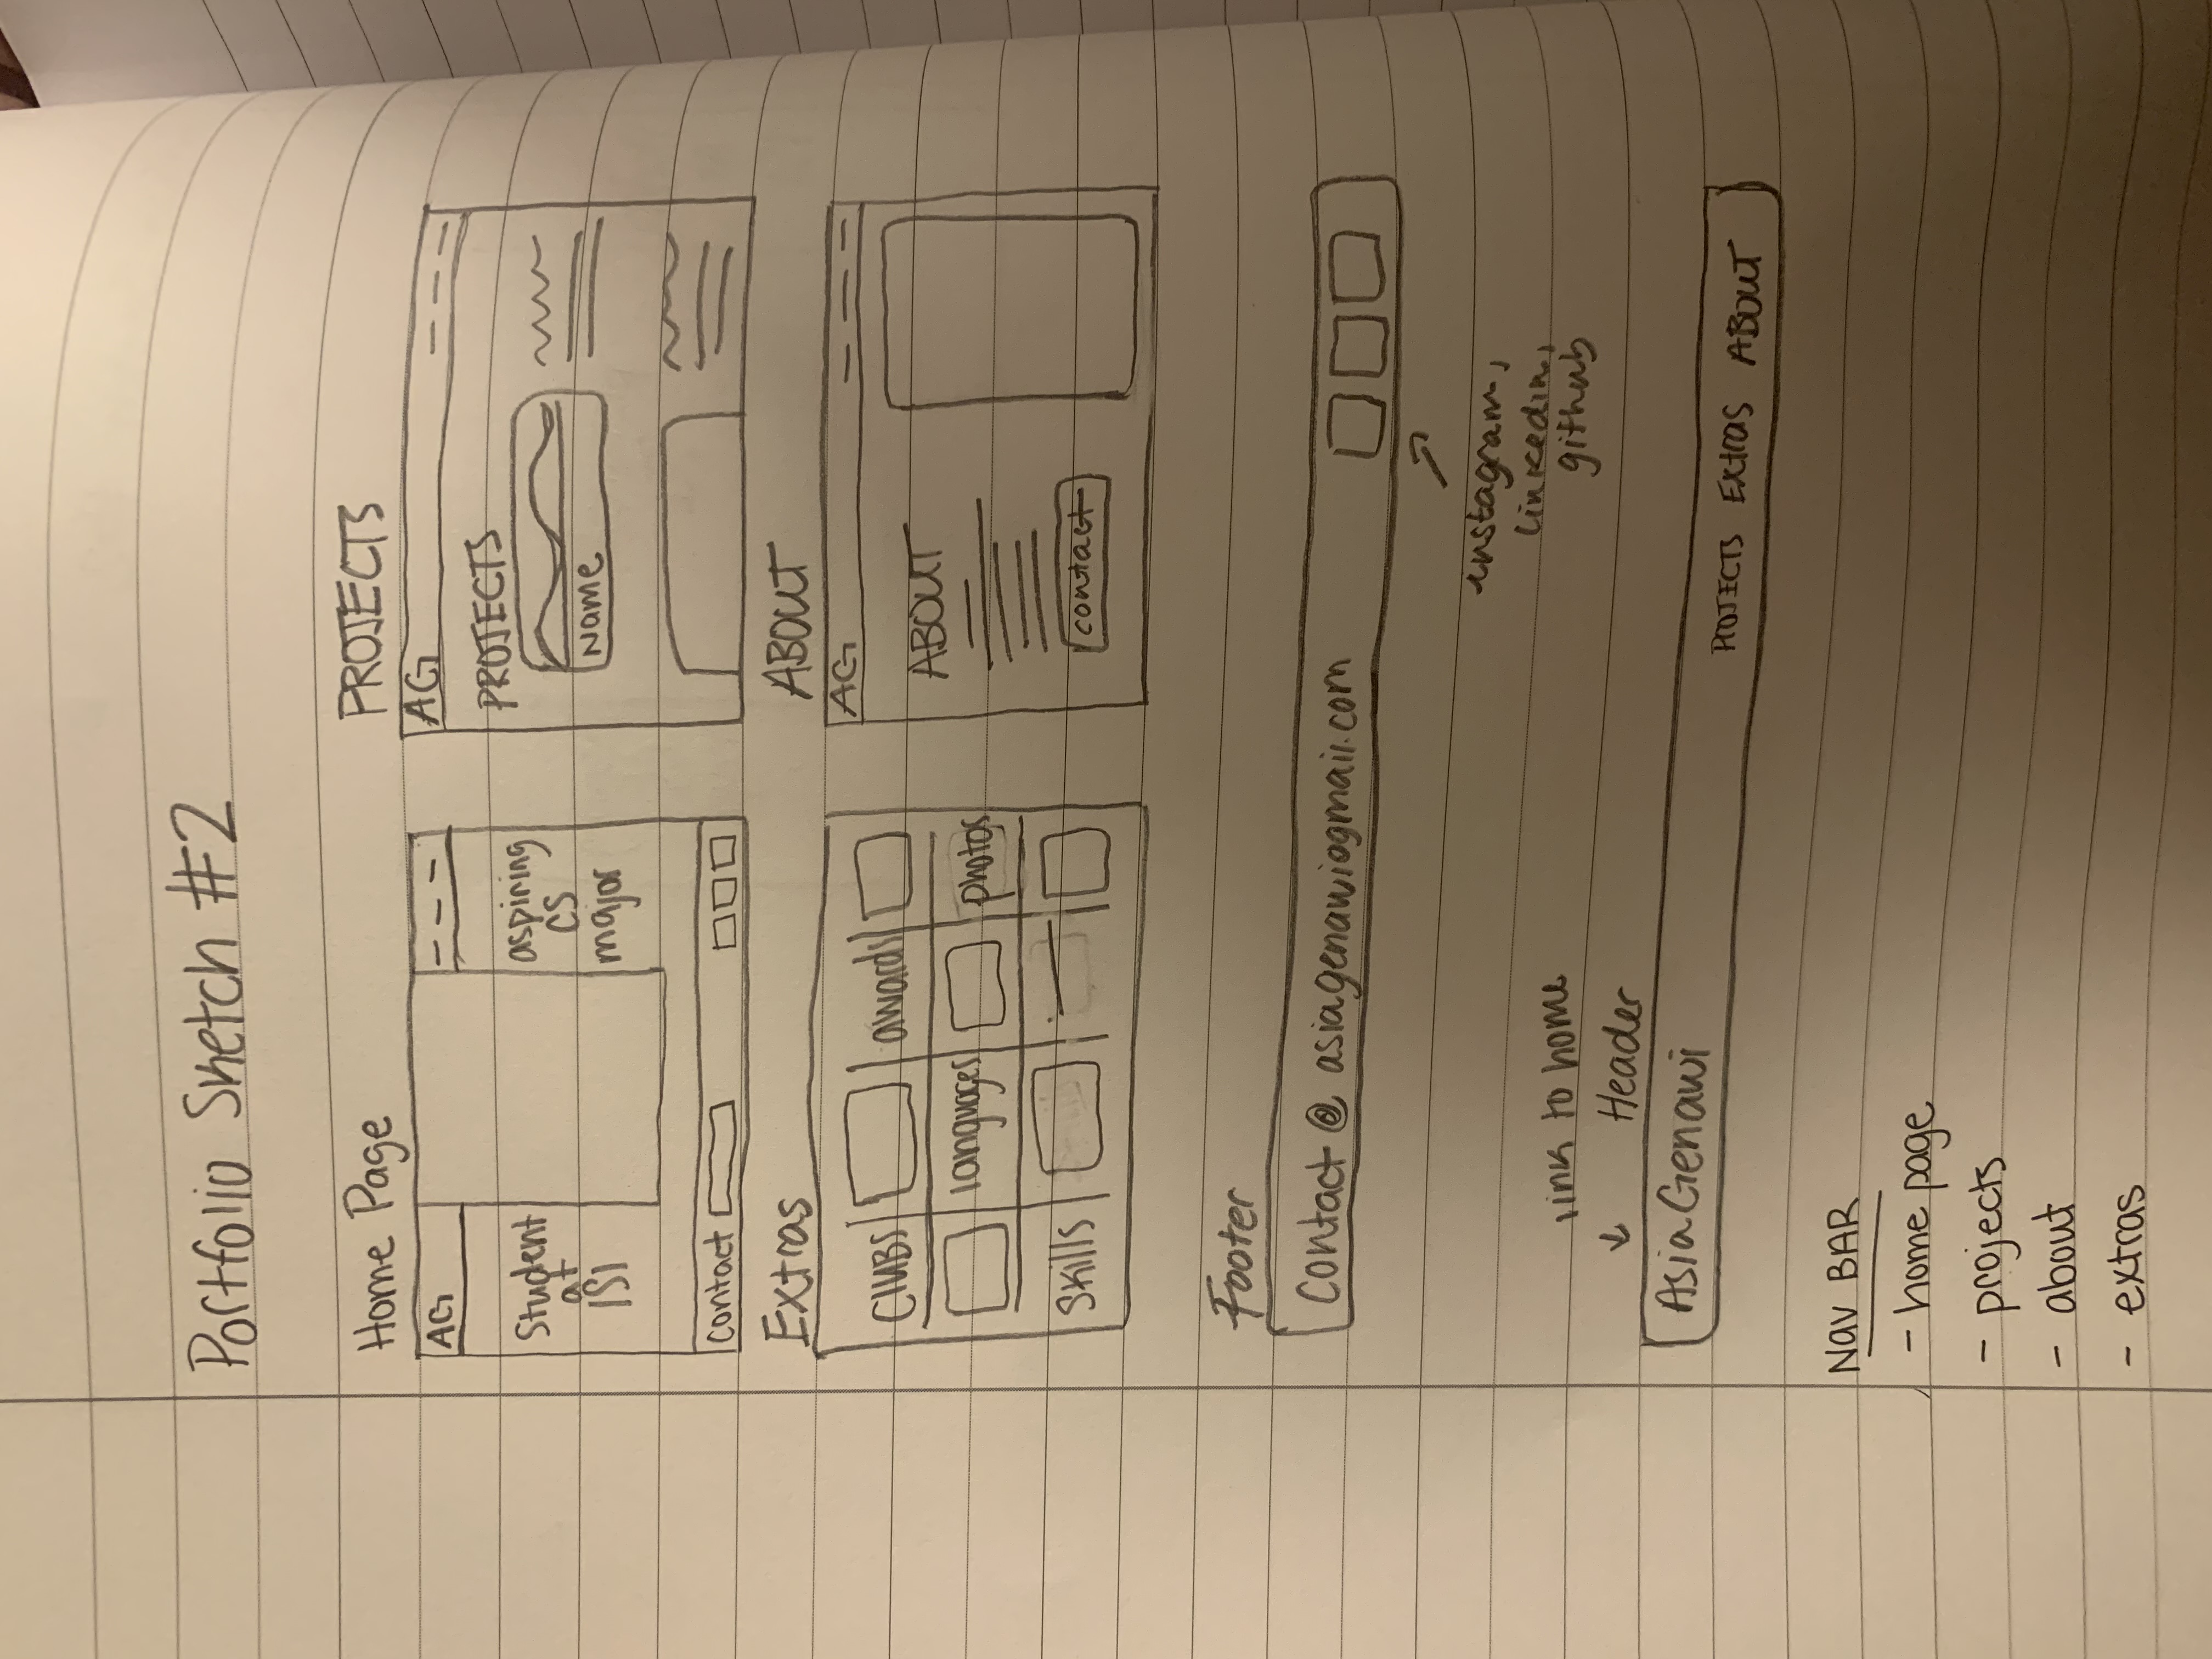 Portfolio Sketch #2
Home Page
AG
Student
at
ISI
aspiring
CS
major
contact
PROJECTS
AG
PROJECTS
Name
Extras
CLUBS
awards
languages
photos
Skills
ABOUT
AG
ABOUT
contact
Footer
Contact @ asiagenawi@gmail.com
instagram,
linkedin,
github
link to home
Header
Asia Genawi
PROJECTS Extras ABOUT
Nav BAR
- home page
- projects
- about
- extras